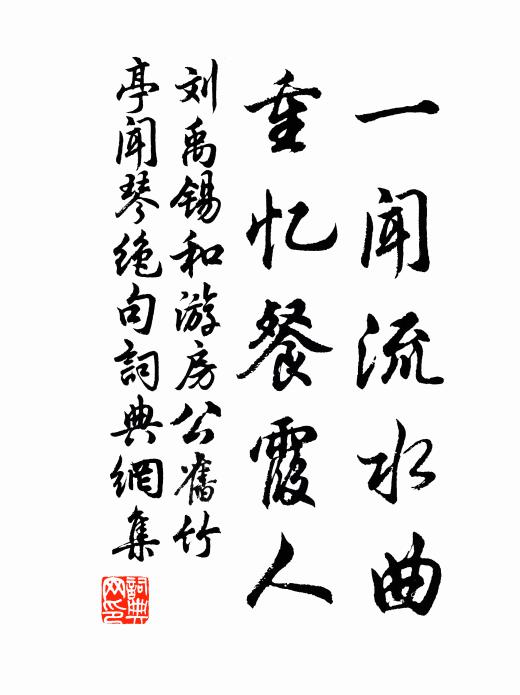 一闻流水曲
重忆餐霞人
刘禹锡和游房公舊竹
亭闻琴绝句詞典網集
詞典网印